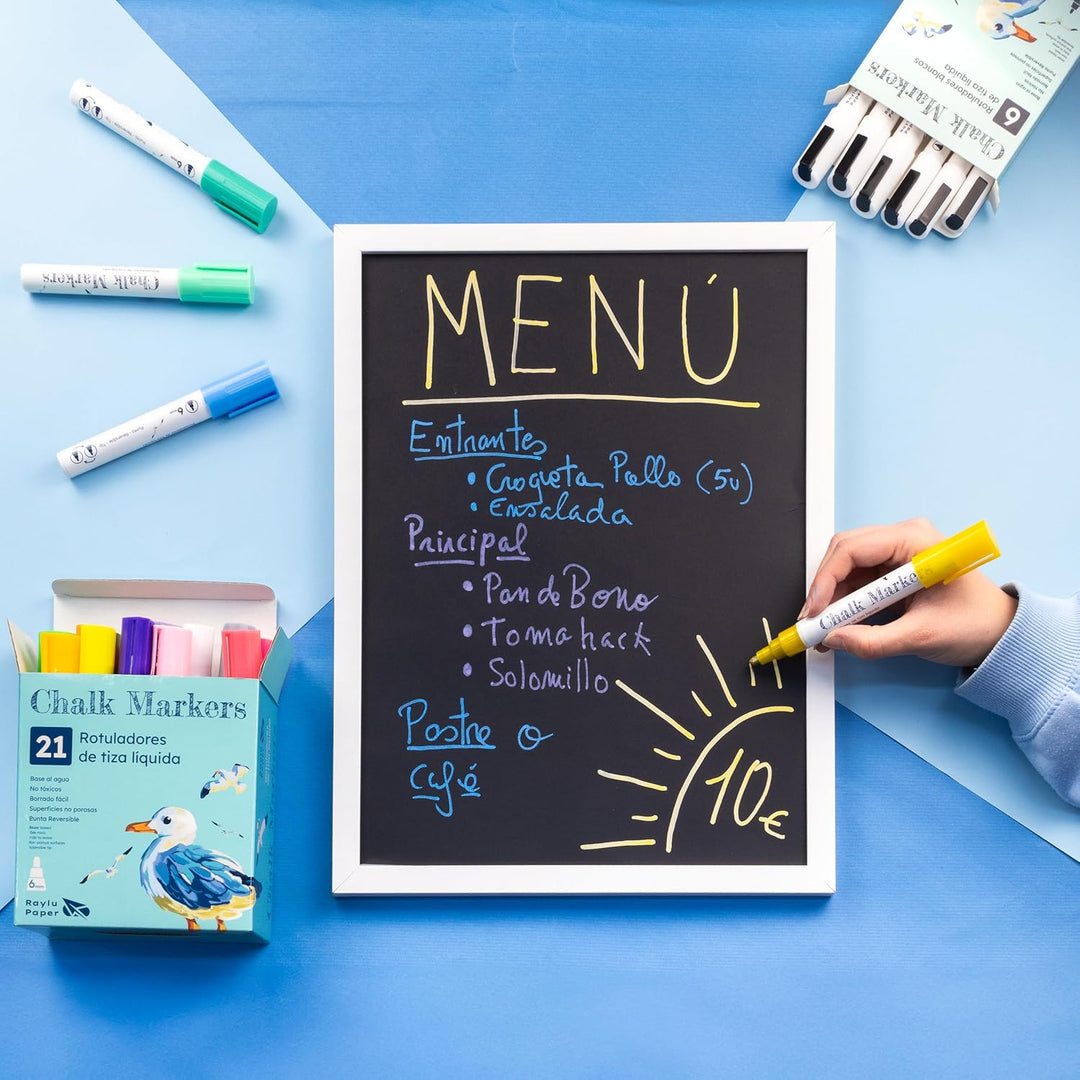 MENÚ
Entrantes
• Croqueta Pollo (5u)
• Ensalada
Principal
• Pan de Bono
• Tomahack
• Solomillo
Postre o
café
10€
Chalk Markers
21 Rotuladores
de tiza líquida
Base al agua
No tóxicos
Borrado fácil
Superficies no porosas
Punta Reversible
6mm
Raylu
Paper
Chalk Markers
Chalk Marke
Chalk Markers
Rotuladores blancos
de tiza líquida
6
Base al agua
No tóxicos
Borrado fácil
Superficies no porosas
Punta Reversible